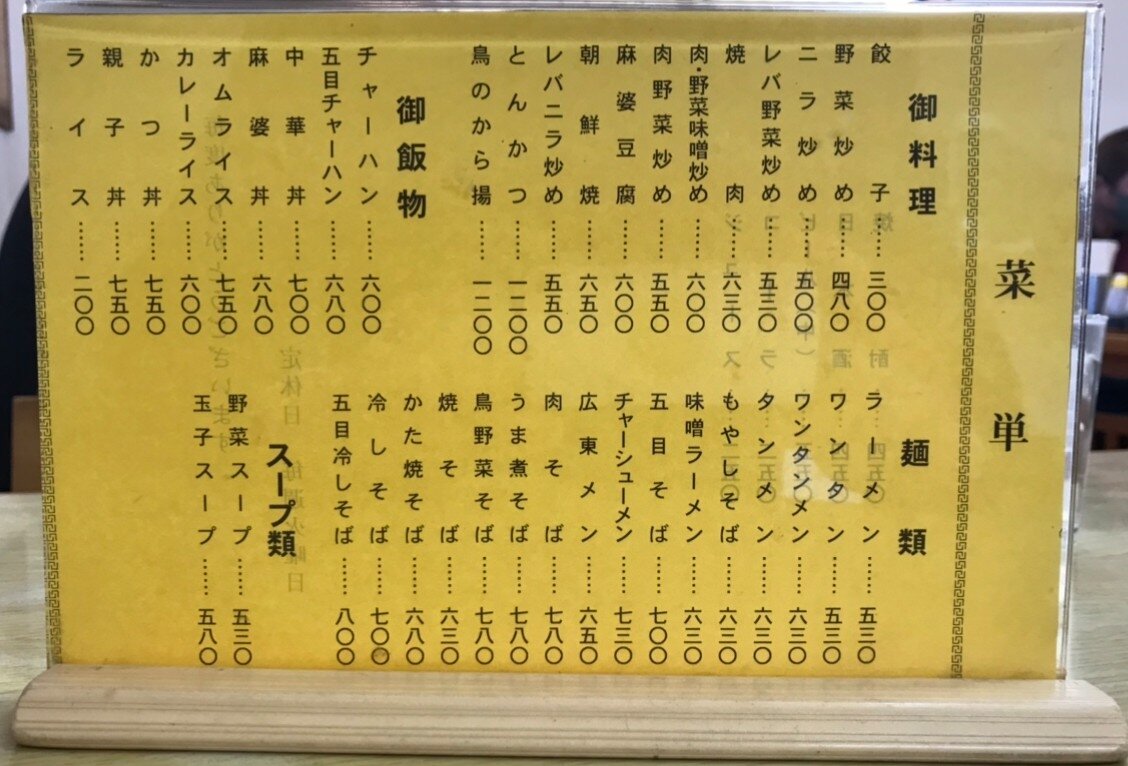 菜単
御料理
餃子……三〇〇
野菜炒め……四八〇
ニラ炒め……五〇〇
レバ野菜炒め……五三〇
焼肉……六三〇
肉・野菜味噌炒め……六〇〇
肉野菜炒め……五五〇
麻婆豆腐……六〇〇
朝鮮焼……六五〇
レバニラ炒め……五五〇
とんかつ……一二〇〇
鳥のから揚……一二〇〇
御飯物
チャーハン……六〇〇
五目チャーハン……六八〇
中華丼……七〇〇
麻婆丼……六八〇
オムライス……七五〇
カレーライス……六〇〇
かつ丼……七五〇
親子丼……七五〇
ライス……二〇〇
麺類
ラーメン……五三〇
ワンタン……五三〇
ワンタンメン……六三〇
タンメン……六三〇
もやしそば……六三〇
味噌ラーメン……六三〇
五目そば……七〇〇
チャーシューメン……七三〇
広東メン……六五〇
肉そば……七八〇
うま煮そば……七八〇
鳥野菜そば……七八〇
焼そば……六三〇
かた焼そば……六八〇
冷しそば……七〇〇
五目冷しそば……八〇〇
スープ類
野菜スープ……五三〇
玉子スープ……五八〇